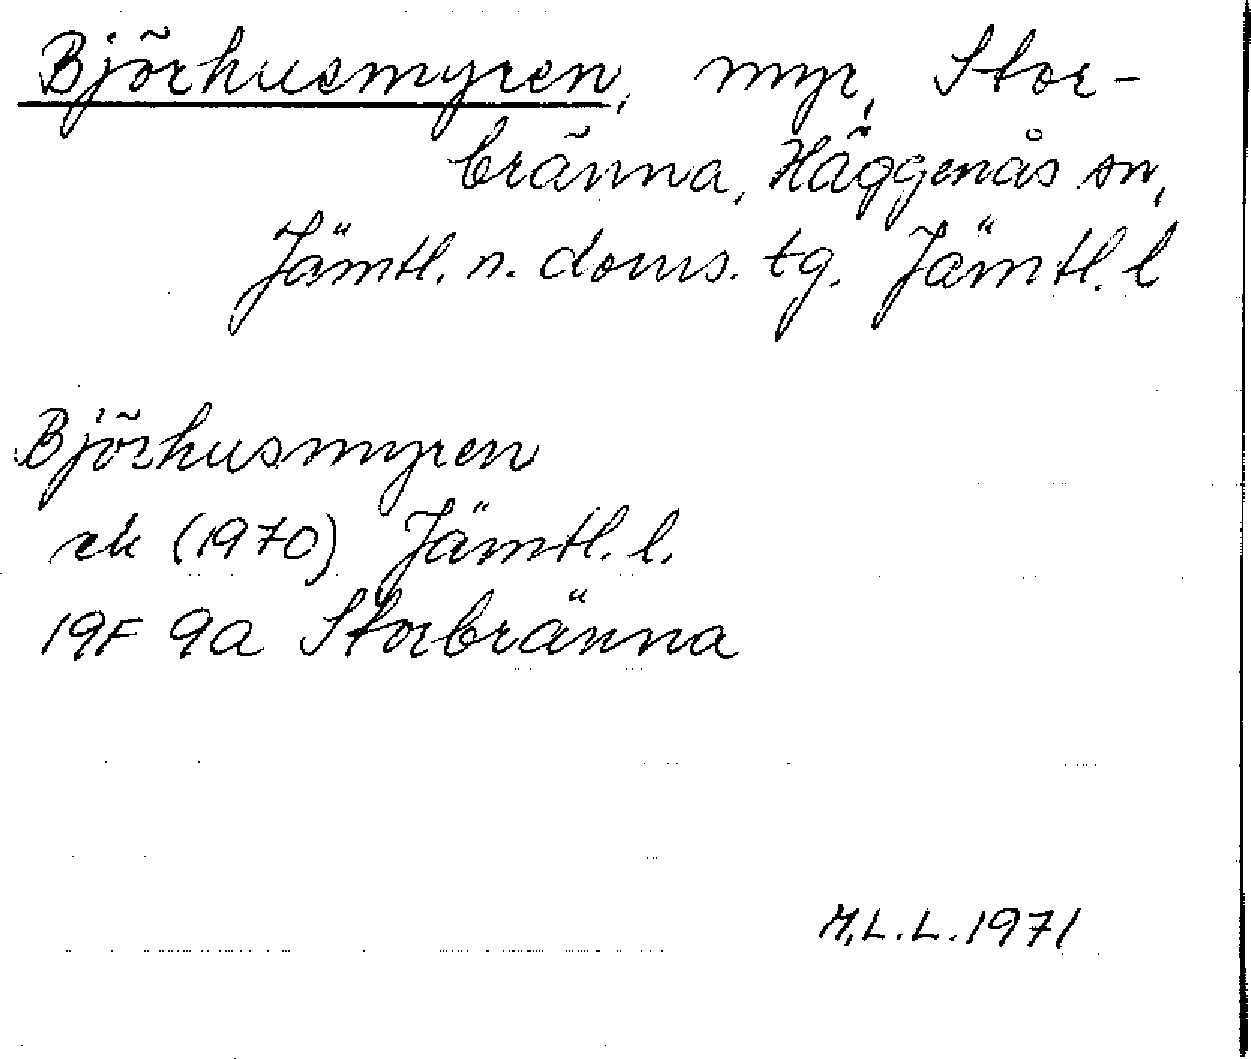 Björhusmyren, myr, Stor-
bränna, Häggenås sn,
Jämtl. n. doms. tg. Jämtl. l
Björhusmyren
ek (1970) Jämtl. l.
19F 9a Storbränna
M.L.L. 1971